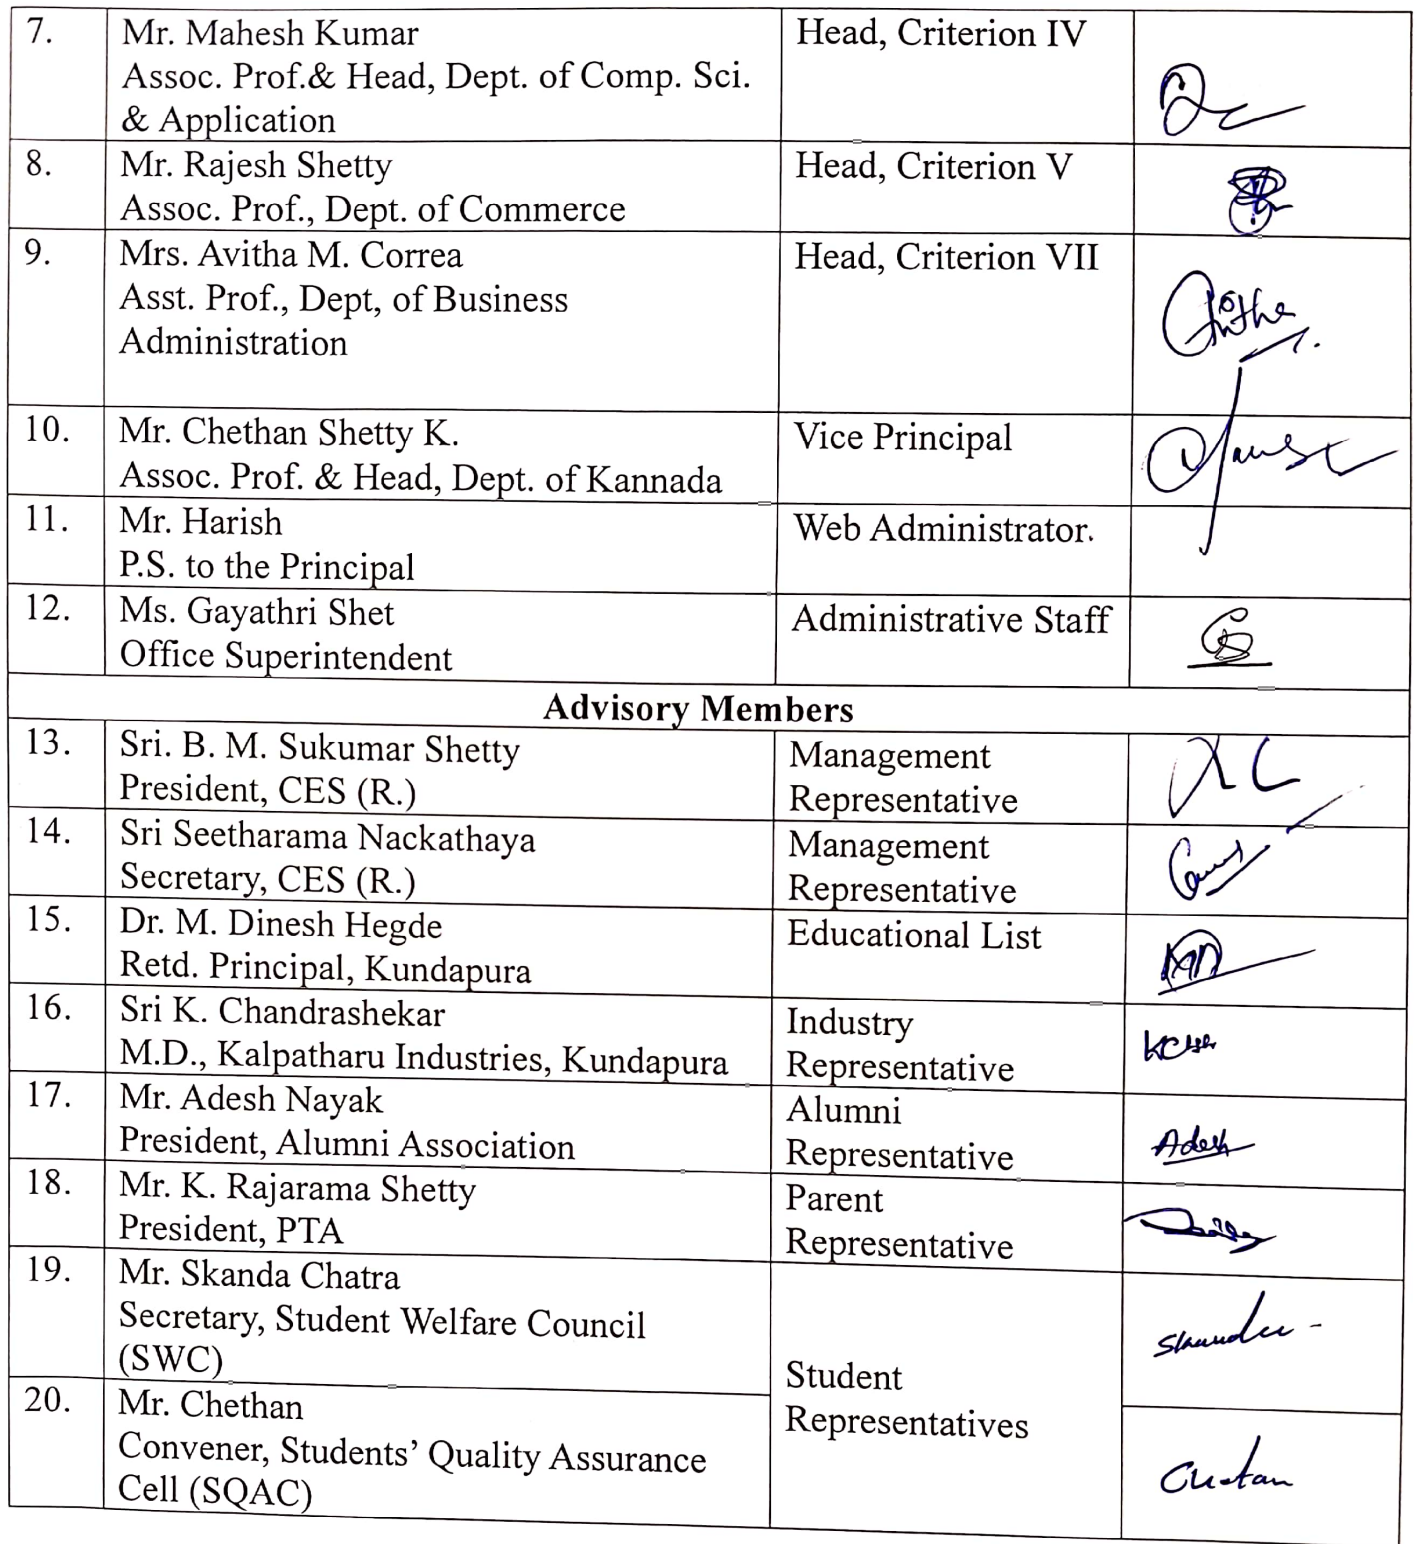 7.
Mr. Mahesh Kumar
Assoc. Prof.& Head, Dept. of Comp. Sci.
& Application
Head, Criterion IV
8.
Mr. Rajesh Shetty
Assoc. Prof., Dept. of Commerce
Head, Criterion V
9.
Mrs. Avitha M. Correa
Asst. Prof., Dept, of Business
Administration
Head, Criterion VII
10.
Mr. Chethan Shetty K.
Assoc. Prof. & Head, Dept. of Kannada
Vice Principal
11.
Mr. Harish
P.S. to the Principal
Web Administrator.
12.
Ms. Gayathri Shet
Office Superintendent
Administrative Staff
Advisory Members
13.
Sri. B. M. Sukumar Shetty
President, CES (R.)
Management
Representative
14.
Sri Seetharama Nackathaya
Secretary, CES (R.)
Management
Representative
15.
Dr. M. Dinesh Hegde
Retd. Principal, Kundapura
Educational List
16.
Sri K. Chandrashekar
M.D., Kalpatharu Industries, Kundapura
Industry
Representative
17.
Mr. Adesh Nayak
President, Alumni Association
Alumni
Representative
Adesh
18.
Mr. K. Rajarama Shetty
President, PTA
Parent
Representative
19.
Mr. Skanda Chatra
Secretary, Student Welfare Council
(SWC)
Student
Representatives
20.
Mr. Chethan
Convener, Students’ Quality Assurance
Cell (SQAC)